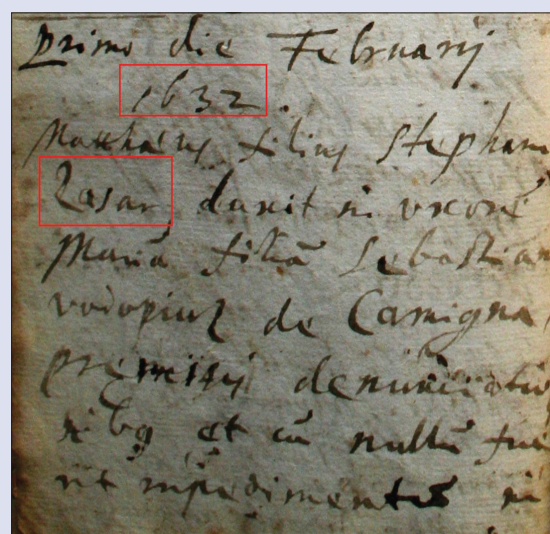 Primo die Februarij
1632.
Matthaeus filius Stephani
Lasar, duxit in uxorē
Mariā filiā Sebastian
vodopiuz de Camigna,
premissis denunciatio
nibq et cū nullū fue
rit impedimentū in